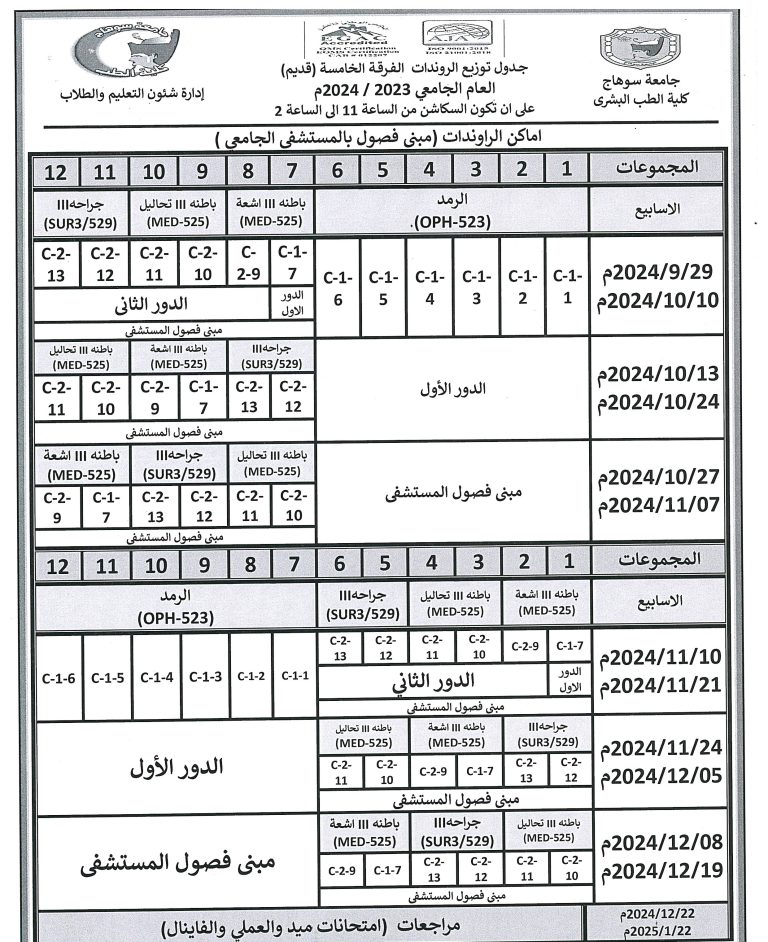 جامعة سوهاج
كلية الطب البشرى
EGAC
Accredited
QMS Certification
EOMS Certification
CAB # 012207
AJA
ISO 9001:2015
ISO 21001:2018
جدول توزيع الروندات الفرقة الخامسة (قديم)
العام الجامعي 2023 / 2024م
على ان تكون السكاشن من الساعة 11 الى الساعة 2
جامعة سوهاج
كلية الطب
إدارة شئون التعليم والطلاب
اماكن الراوندات (مبنى فصول بالمستشفى الجامعي )
المجموعات 1 2 3 4 5 6 7 8 9 10 11 12
الاسابيع
الرمد
(OPH-523).
باطنه III اشعة
(MED-525)
باطنه III تحاليل
(MED-525)
جراحهIII
(SUR3/529)
2024/9/29م
2024/10/10م
C-1-1 C-1-2 C-1-3 C-1-4 C-1-5 C-1-6 C-1-7 C-2-9 C-2-10 C-2-11 C-2-12 C-2-13
الدور الاول
الدور الثانى
مبنى فصول المستشفى
2024/10/13م
2024/10/24م
الدور الأول
جراحهIII
(SUR3/529)
باطنه III اشعة
(MED-525)
باطنه III تحاليل
(MED-525)
C-2-12 C-2-13 C-1-7 C-2-9 C-2-10 C-2-11
مبنى فصول المستشفى
2024/10/27م
2024/11/07م
مبنى فصول المستشفى
باطنه III تحاليل
(MED-525)
جراحهIII
(SUR3/529)
باطنه III اشعة
(MED-525)
C-2-10 C-2-11 C-2-12 C-2-13 C-1-7 C-2-9
مبنى فصول المستشفى
المجموعات 1 2 3 4 5 6 7 8 9 10 11 12
الاسابيع
باطنه III اشعة
(MED-525)
باطنه III تحاليل
(MED-525)
جراحهIII
(SUR3/529)
الرمد
(OPH-523)
2024/11/10م
2024/11/21م
C-1-7 C-2-9 C-2-10 C-2-11 C-2-12 C-2-13 C-1-1 C-1-2 C-1-3 C-1-4 C-1-5 C-1-6
الدور الاول
الدور الثاني
مبنى فصول المستشفى
2024/11/24م
2024/12/05م
جراحهIII
(SUR3/529)
باطنه III اشعة
(MED-525)
باطنه III تحاليل
(MED-525)
الدور الأول
C-2-12 C-2-13 C-1-7 C-2-9 C-2-10 C-2-11
مبنى فصول المستشفى
2024/12/08م
2024/12/19م
باطنه III تحاليل
(MED-525)
جراحهIII
(SUR3/529)
باطنه III اشعة
(MED-525)
مبنى فصول المستشفى
C-2-10 C-2-11 C-2-12 C-2-13 C-1-7 C-2-9
مبنى فصول المستشفى
2024/12/22م
2025/1/22م
مراجعات (امتحانات ميد والعملي والفاينال)